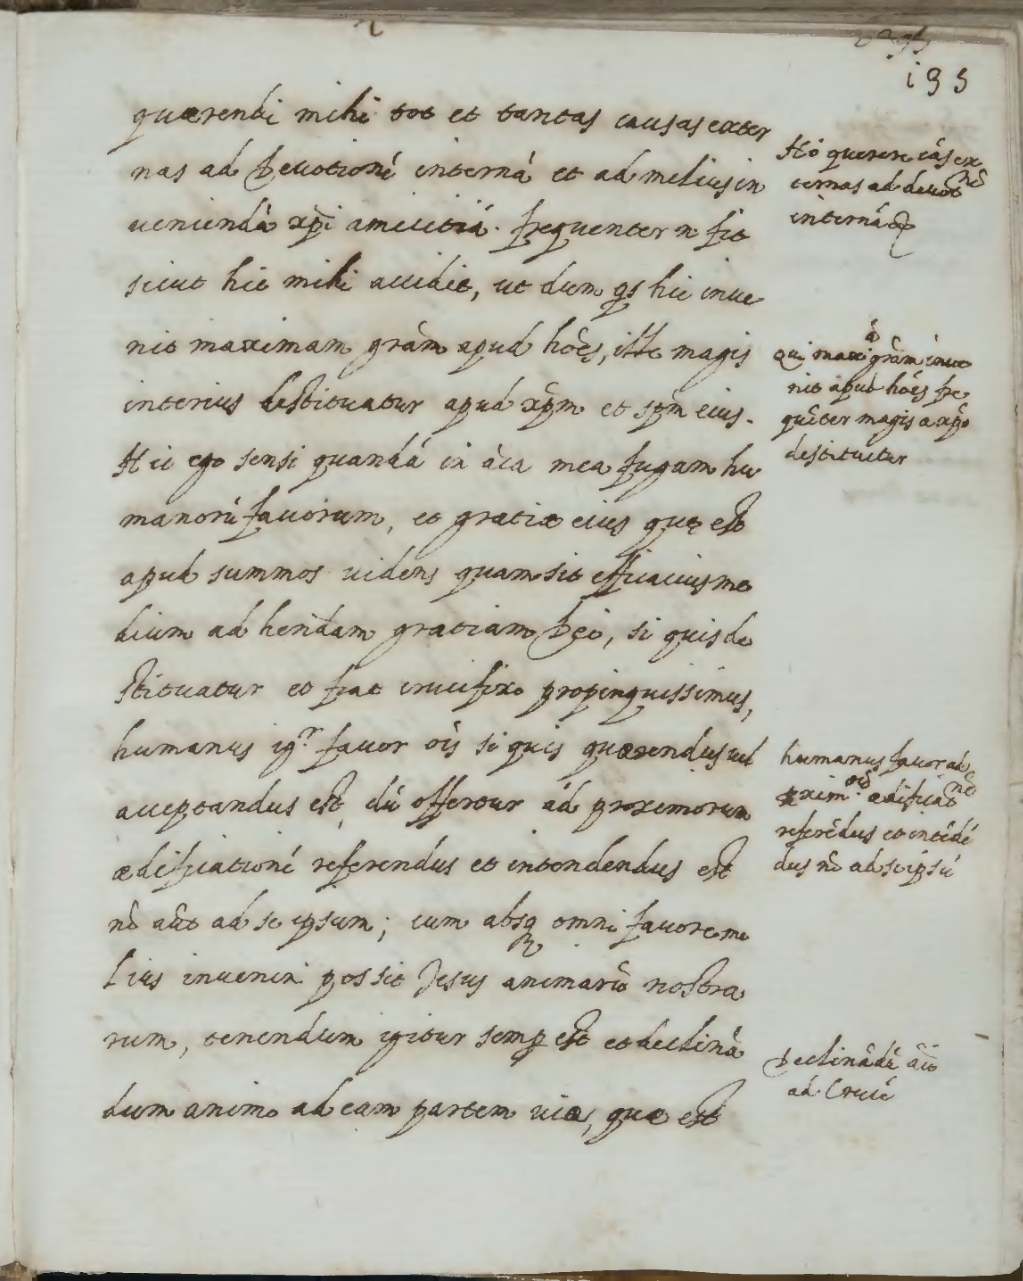 195
quærendi mihi tot et tantas causas exter
nas ad devotionẽ internã et ad melius in
veniendã xp̃i amicitiã. frequenter n. fit
sicut hic mihi accidit, ut dum qs hic inve
nit maximam grãm apud hoẽs, ille magis
interius destituatur apud xp̃m et spm̃ eius.
Hic ego sensi quandã in aĩa mea fugam hu
manorũ favorum, et gratiæ eius quę est
apud summos videns quam sit efficacius me
dium ad hendam gratiam Dei, si quis de
stituatur et fiat crucifixo propinquissimus,
humanus igr favor oĩs si quis quærendus vel
acceptandus est dũ offertur ad proximorum
ædificationẽ referendus et intendendus est
nõ aũt ad se ipsum; cum absq omni favore me
lius inveniri possit Jesus animarũ nostra
rum, tenendum igitur semp est et declinã
dum animo ad eam partem viæ, quæ est
Nõ querere cãs ex
ternas ad devot nẽ
internã
Qui maxã grãm inve
nit apud hoẽs fre
quẽter magis a xp̃o
destituitur
humanus favor ad
pxim orũ ædificat nẽ
referẽdus et intẽdẽ
dus nõ ad seipsũ
Declinãdũ aĩo
ad Crucẽ